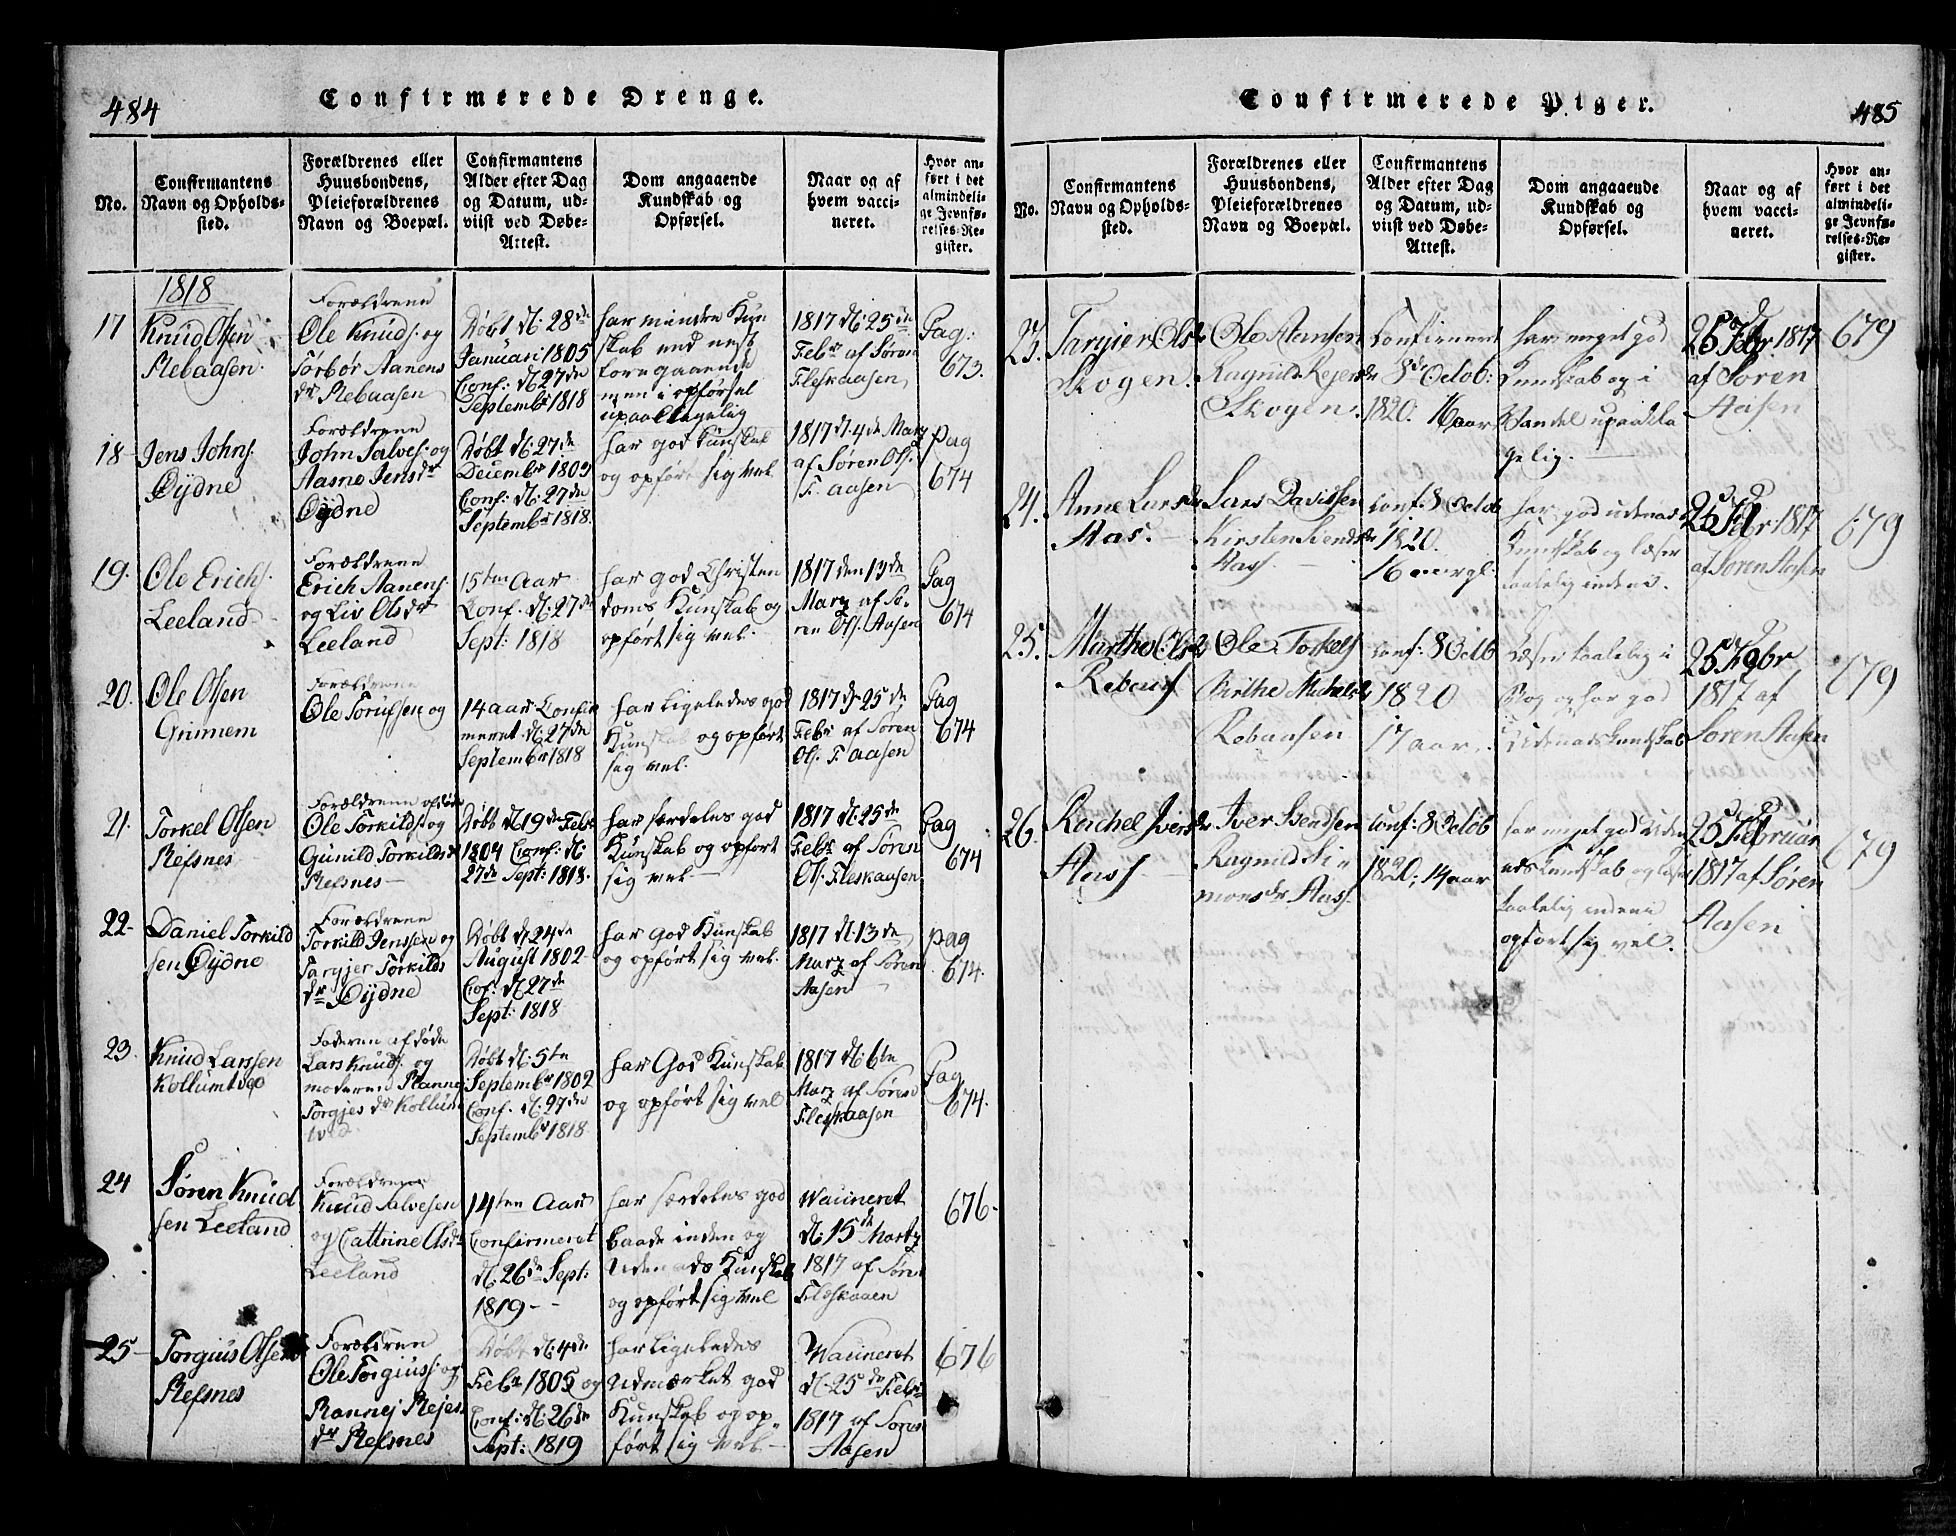 484
Confirmerede Drenge.
No.
Confirmantens
Navn og Opholds-
sted.
Forældrenes eller
Huusbondens,
Pleieforældrenes
Navn og Boepæl.
Confirmantens
Alder efter Dag
og Datum, ud-
viist ved Døbe-
Attest.
Dom angaaende
Kundskab og
Opførsel.
Naar og af
hvem vacci-
neret.
Hvor an-
ført i det
almindeli-
ge Jevnfø-
relses-Re-
gister.
1818
17
Knud Olsen
Rebaasen.
Forældrene
Ole Knuds: og
Torbør Aanens
dr Rebaasen
Døbt d: 28de
Januari 1805
Conf: d: 27de
Septembr 1818
har mindre Kun
skab end nest
foregaaende
men i opførsel
upaaklagelig
1817 d: 25de
Febr af Søren
Fleskaasen
Pag:
673.
18
Jens Johns.
Øydne
Forældrene
John Salves: og
Aasne Jensdr
Øydne
Døbt d: 27de
Decembr 1803
Conf: d: 27de
Septembr 1818.
har god Kunskab
og opført sig vel
1817 d. 4de Marz
af Søren Ols.
F. aasen
Pag
674
19.
Ole Erichs.
Leeland
Forældrene
Erich Aanens
og Liv Olsdr
Leeland
15ten Aar
Conf. d: 27de
Sept: 1818
har god Christen
doms Kunskab og
opført sig vel.
1817 den 13de
Marz af Sø-
ren Ols. Aasen
Pag
674
20.
Ole Olsen
Grimem
Forældrene
Ole Torufsen og
14 aar Confir
meret d: 27de
Septembr 1818
har ligeledes god
Kunskab og opført
sig vel.
1817 d: 25de
Febr af Søren
Ols. F. aasen
Pag
674
21.
Torkel Olsen
Refsnes
Forældrene afdøde
Ole Torkilds: og
Gunild Torkildsdr
Refsnes
Døbt d: 19de Febr
1804 Conf: d:
27de Sept: 1818.
har særdeles god
Kunskab og opført
sig vel
1817 d: 25de
Febr af Søren
Ols. Fleskaasen
Pag
674
22
Daniel Torkild
sen Øydne
Forældrene
Torkild Jenssen og
Targjer Torkilds
dr Øydne
Døbt d: 24de
August 1802
Conf: d: 27de
Sept: 1818
har god Kunskab
og opført sig vel.
1817 d: 13de
Marz af Søren
Aasen
pag
674.
23
Knud Larssen
Kollumtved
Faderen afdøde
Lars Knuds. og
moderen Ranne
Torgjes dr Kollum
tved.
Døbt d: 5te
Septembr 1802
Conf. d: 27de
Septembr 1818
har God Kunskab
og opført sig vel
1817 d: 6te
Marz af Søren
Fleskaasen
Pag
674.
24
Søren Knud
sen Leeland
Forældrene
Knud Salvesen
og Cattrine Olsdr
Leeland
14ten Aar
Confirmeret
d: 26de Sept:
1819
har særdeles god
baade inden og
Uden ads Kunskab
og opført sig vel
Waccineret
d: 15de Martz
1817 af Søren
Fleskaaen
676
25
Torgius Olsen
Refsnes
Forældrene
Ole Torgiuss: og
Rannej Rejers
dr Refsnes
Døbt d: 4de
Febr 1805 og
Conf: d: 26de
Sept: 1819
har ligeledes
Udmærket god
Kunskab og op-
ført sig vel
Waccineret
d. 25de Febr
1817 af Søren
Aasen
676
485
Confirmerede Piger.
No.
Confirmantens
Navn og Opholds-
sted.
Forældrenes eller
Huusbondens,
Pleieforældrenes
Navn og Boepæl.
Confirmantens
Alder efter Dag
og Datum, ud-
viist ved Døbe-
Attest.
Dom angaaende
Kundskab og
Opførsel.
Naar og af
hvem vacci-
neret.
Hvor an-
ført i det
almindeli-
ge Jevnfø-
relses-Re-
gister.
23.
Targier Olsdr
Skogen.
Ole Atensen
Ragnild Rejersdr
Skogen.
Confirmert
8de Octob:
1820. 16 aar
har meget god
Kundskab og i
Vandel upaakla
gelig.
25 Febr. 1817
af Søren
Aasen
679
24.
Anne Larsdr
Aas.
Lars Davidsen
Kirsten Svendsdr
Aass.
Conf: 8 Octob
1820.
16 aar gl.
har god udenads
Kundskab og læser
taalelig indeni.
25 Febr. 1817
af Søren Aasen
679
25.
Marthe Olsdr
Rebaas
Ole Torkels
Birthe Michelsdr
Rebaasen
Conf: 8 Octb
1820
17 aar.
Læser taalelig i
Bog og har god
Udenadskundskab
25 Febr
1817 af
Søren Aasen
679
26.
Rachel Iversdr
Aass
Iver Svendsen
Ragnild Si-
monsdr Aass.
Conf: 8 Octob
1820; 14 aar
har meget god Uden
ads Kundskab og læser
taalelig indeni
opført sig vel.
25 Februar
1817 af Søren
Aasen
679